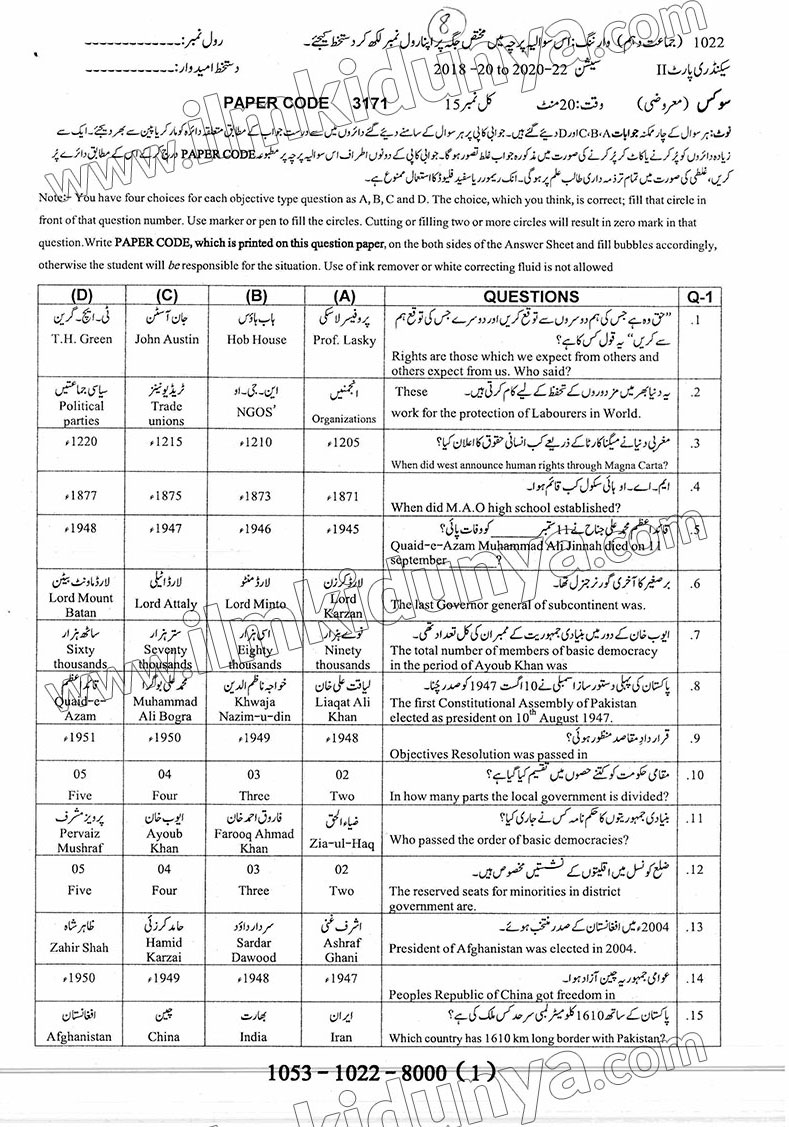 8
1022 (جماعت دہم) وارننگ: اس سوالیہ پرچہ میں مختص جگہ پر اپنا رول نمبر لکھ کر دستخط کیجئے۔ رول نمبر: ------------
سیکنڈری پارٹ II سیشن 2018-20 to 2020-22 دستخط امیدوار: ------------
سوکس (معروضی) وقت: 20 منٹ کل نمبر 15 PAPER CODE 3171
نوٹ: ہر سوال کے چار ممکنہ جوابات C، B، A اور D دیئے گئے ہیں۔ جوابی کاپی پر ہر سوال کے سامنے دیئے گئے دائروں میں سے درست جواب کے مطابق متعلقہ دائرہ کو مارکر یا پین سے بھر دیجئے۔ ایک سے
زیادہ دائروں کو پُر کرنے یا کاٹ کر پُر کرنے کی صورت میں مذکورہ جواب غلط تصور ہوگا۔ جوابی کاپی کے دونوں اطراف اس سوالیہ پرچہ پر مطبوعہ PAPER CODE درج کر کے اس کے مطابق دائرے پُر
کریں، غلطی کی صورت میں تمام تر ذمہ داری طالب علم پر ہوگی۔ انک ریموور یا سفید فلیوڈ کا استعمال ممنوع ہے۔
Note:- You have four choices for each objective type question as A, B, C and D. The choice, which you think, is correct; fill that circle in
front of that question number. Use marker or pen to fill the circles. Cutting or filling two or more circles will result in zero mark in that
question.Write PAPER CODE, which is printed on this question paper, on the both sides of the Answer Sheet and fill bubbles accordingly,
otherwise the student will be responsible for the situation. Use of ink remover or white correcting fluid is not allowed
(D) (C) (B) (A) QUESTIONS Q-1
ٹی۔ایچ۔گرین جان آسٹن ہاب ہاؤس پروفیسر لاسکی "حق وہ ہے جس کی ہم دوسروں سے توقع کریں اور دوسرے جس کی توقع ہم .1
سے کریں" یہ قول کس کا ہے؟
T.H. Green John Austin Hob House Prof. Lasky Rights are those which we expect from others and
others expect from us. Who said?
سیاسی جماعتیں ٹریڈ یونینز این۔جی۔او انجمنیں یہ دنیا بھر میں مزدوروں کے تحفظ کے لیے کام کرتی ہیں۔ These .2
Political parties Trade unions NGOS' Organizations work for the protection of Labourers in World.
1220ء 1215ء 1210ء 1205ء مغربی دنیا نے میگنا کارٹا کے ذریعے کب انسانی حقوق کا اعلان کیا؟ .3
When did west announce human rights through Magna Carta?
1877ء 1875ء 1873ء 1871ء ایم۔اے۔او ہائی سکول کب قائم ہوا۔ .4
When did M.A.O high school established?
1948ء 1947ء 1946ء 1945ء قائد اعظم محمد علی جناح نے 11 ستمبر ______ کو وفات پائی؟ .5
Quaid-e-Azam Muhammad Ali Jinnah died on 11
september ______?
لارڈ ماونٹ بیٹن لارڈ اٹیلی لارڈ منٹو لارڈ کرزن برصغیر کا آخری گورنر جنرل تھا۔ .6
Lord Mount Batan Lord Attaly Lord Minto Lord Karzan The last Governor general of subcontinent was.
ساٹھ ہزار ستر ہزار اسی ہزار نوے ہزار ایوب خان کے دور میں بنیادی جمہوریت کے ممبران کی کل تعداد تھی۔ .7
Sixty thousands Seventy thousands Eighty thousands Ninety thousands The total number of members of basic democracy
in the period of Ayoub Khan was
قائد اعظم محمد علی بوگرا خواجہ ناظم الدین لیاقت علی خان پاکستان کی پہلی دستور ساز اسمبلی نے 10 اگست 1947 کو صدر چُنا۔ .8
Quaid-e-Azam Muhammad Ali Bogra Khwaja Nazim-u-din Liaqat Ali Khan The first Constitutional Assembly of Pakistan
elected as president on 10th August 1947.
1951ء 1950ء 1949ء 1948ء قرارداد مقاصد منظور ہوئی؟ .9
Objectives Resolution was passed in
05 04 03 02 مقامی حکومت کو کتنے حصوں میں تقسیم کیا گیا ہے؟ .10
Five Four Three Two In how many parts the local government is divided?
پرویز مشرف ایوب خان فاروق احمد خان ضیاء الحق بنیادی جمہوریتوں کا حکم نامہ کس نے جاری کیا؟ .11
Pervaiz Mushraf Ayoub Khan Farooq Ahmad Khan Zia-ul-Haq Who passed the order of basic democracies?
05 04 03 02 ضلع کونسل میں اقلیتوں کے نشستیں مخصوص ہیں۔ .12
Five Four Three Two The reserved seats for minorities in district
government are.
ظاہر شاہ حامد کرزئی سردار داؤد اشرف غنی 2004ء میں افغانستان کے صدر منتخب ہوئے۔ .13
Zahir Shah Hamid Karzai Sardar Dawood Ashraf Ghani President of Afghanistan was elected in 2004.
1950ء 1949ء 1948ء 1947ء عوامی جمہوریہ چین آزاد ہوا۔ .14
Peoples Republic of China got freedom in
افغانستان چین بھارت ایران پاکستان کے ساتھ 1610 کلو میٹر لمبی سرحد کس ملک کی ہے؟ .15
Afghanistan China India Iran Which country has 1610 km long border with Pakistan?
1053 - 1022 - 8000 (1)
www.ilmkidunya.com
www.ilmkidunya.com
www.ilmkidunya.com
www.ilmkidunya.com